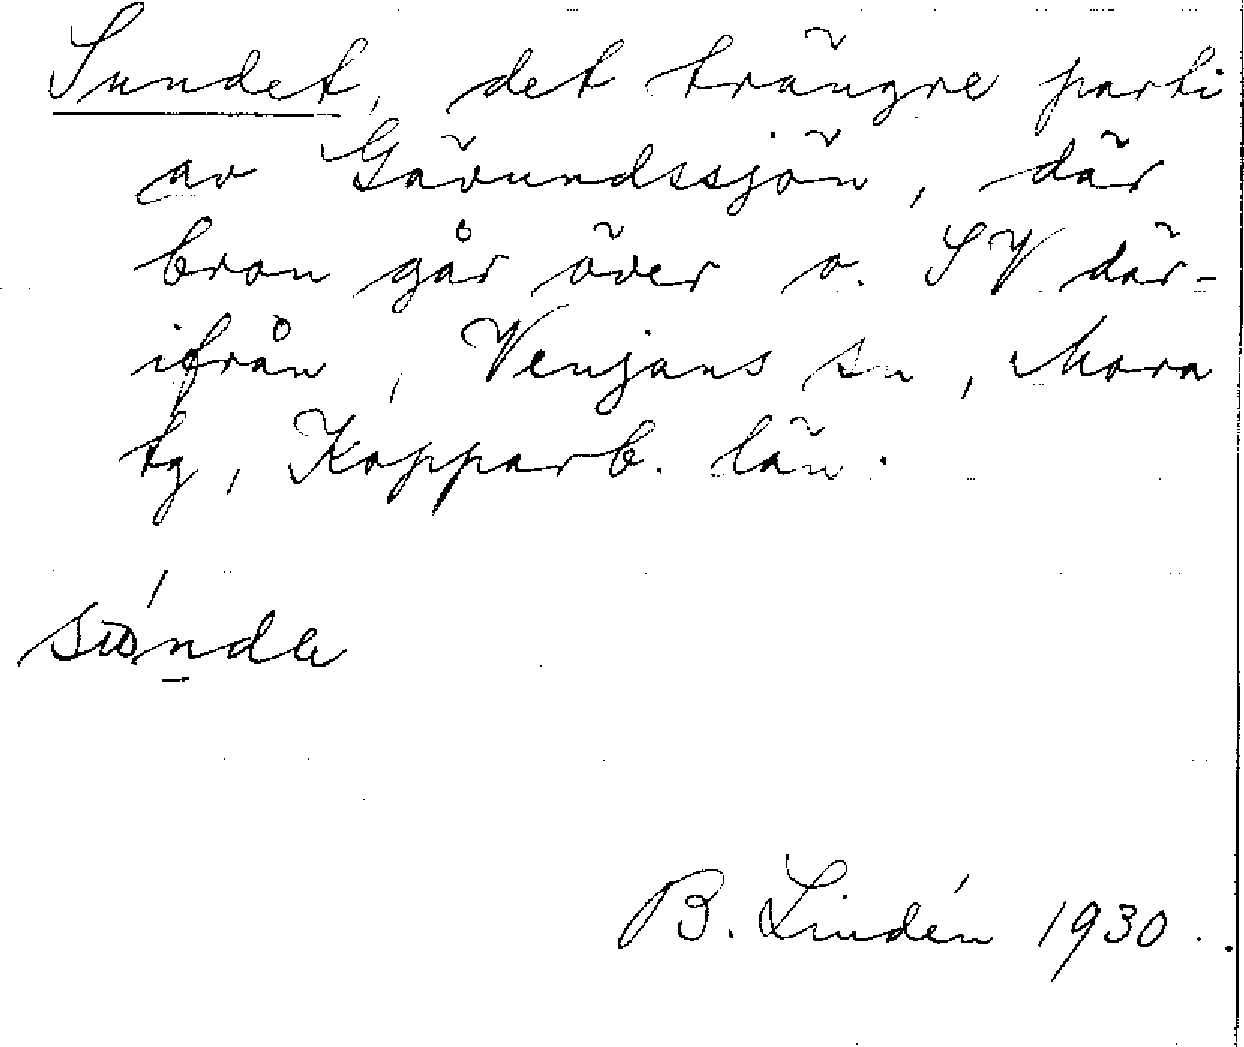 Sundet, det trängre parti
av Gävundssjön, där
bron går över o. SV där-
ifrån, Venjans sn, Mora
tg, Kopparb. län.
B. Lindén 1930.